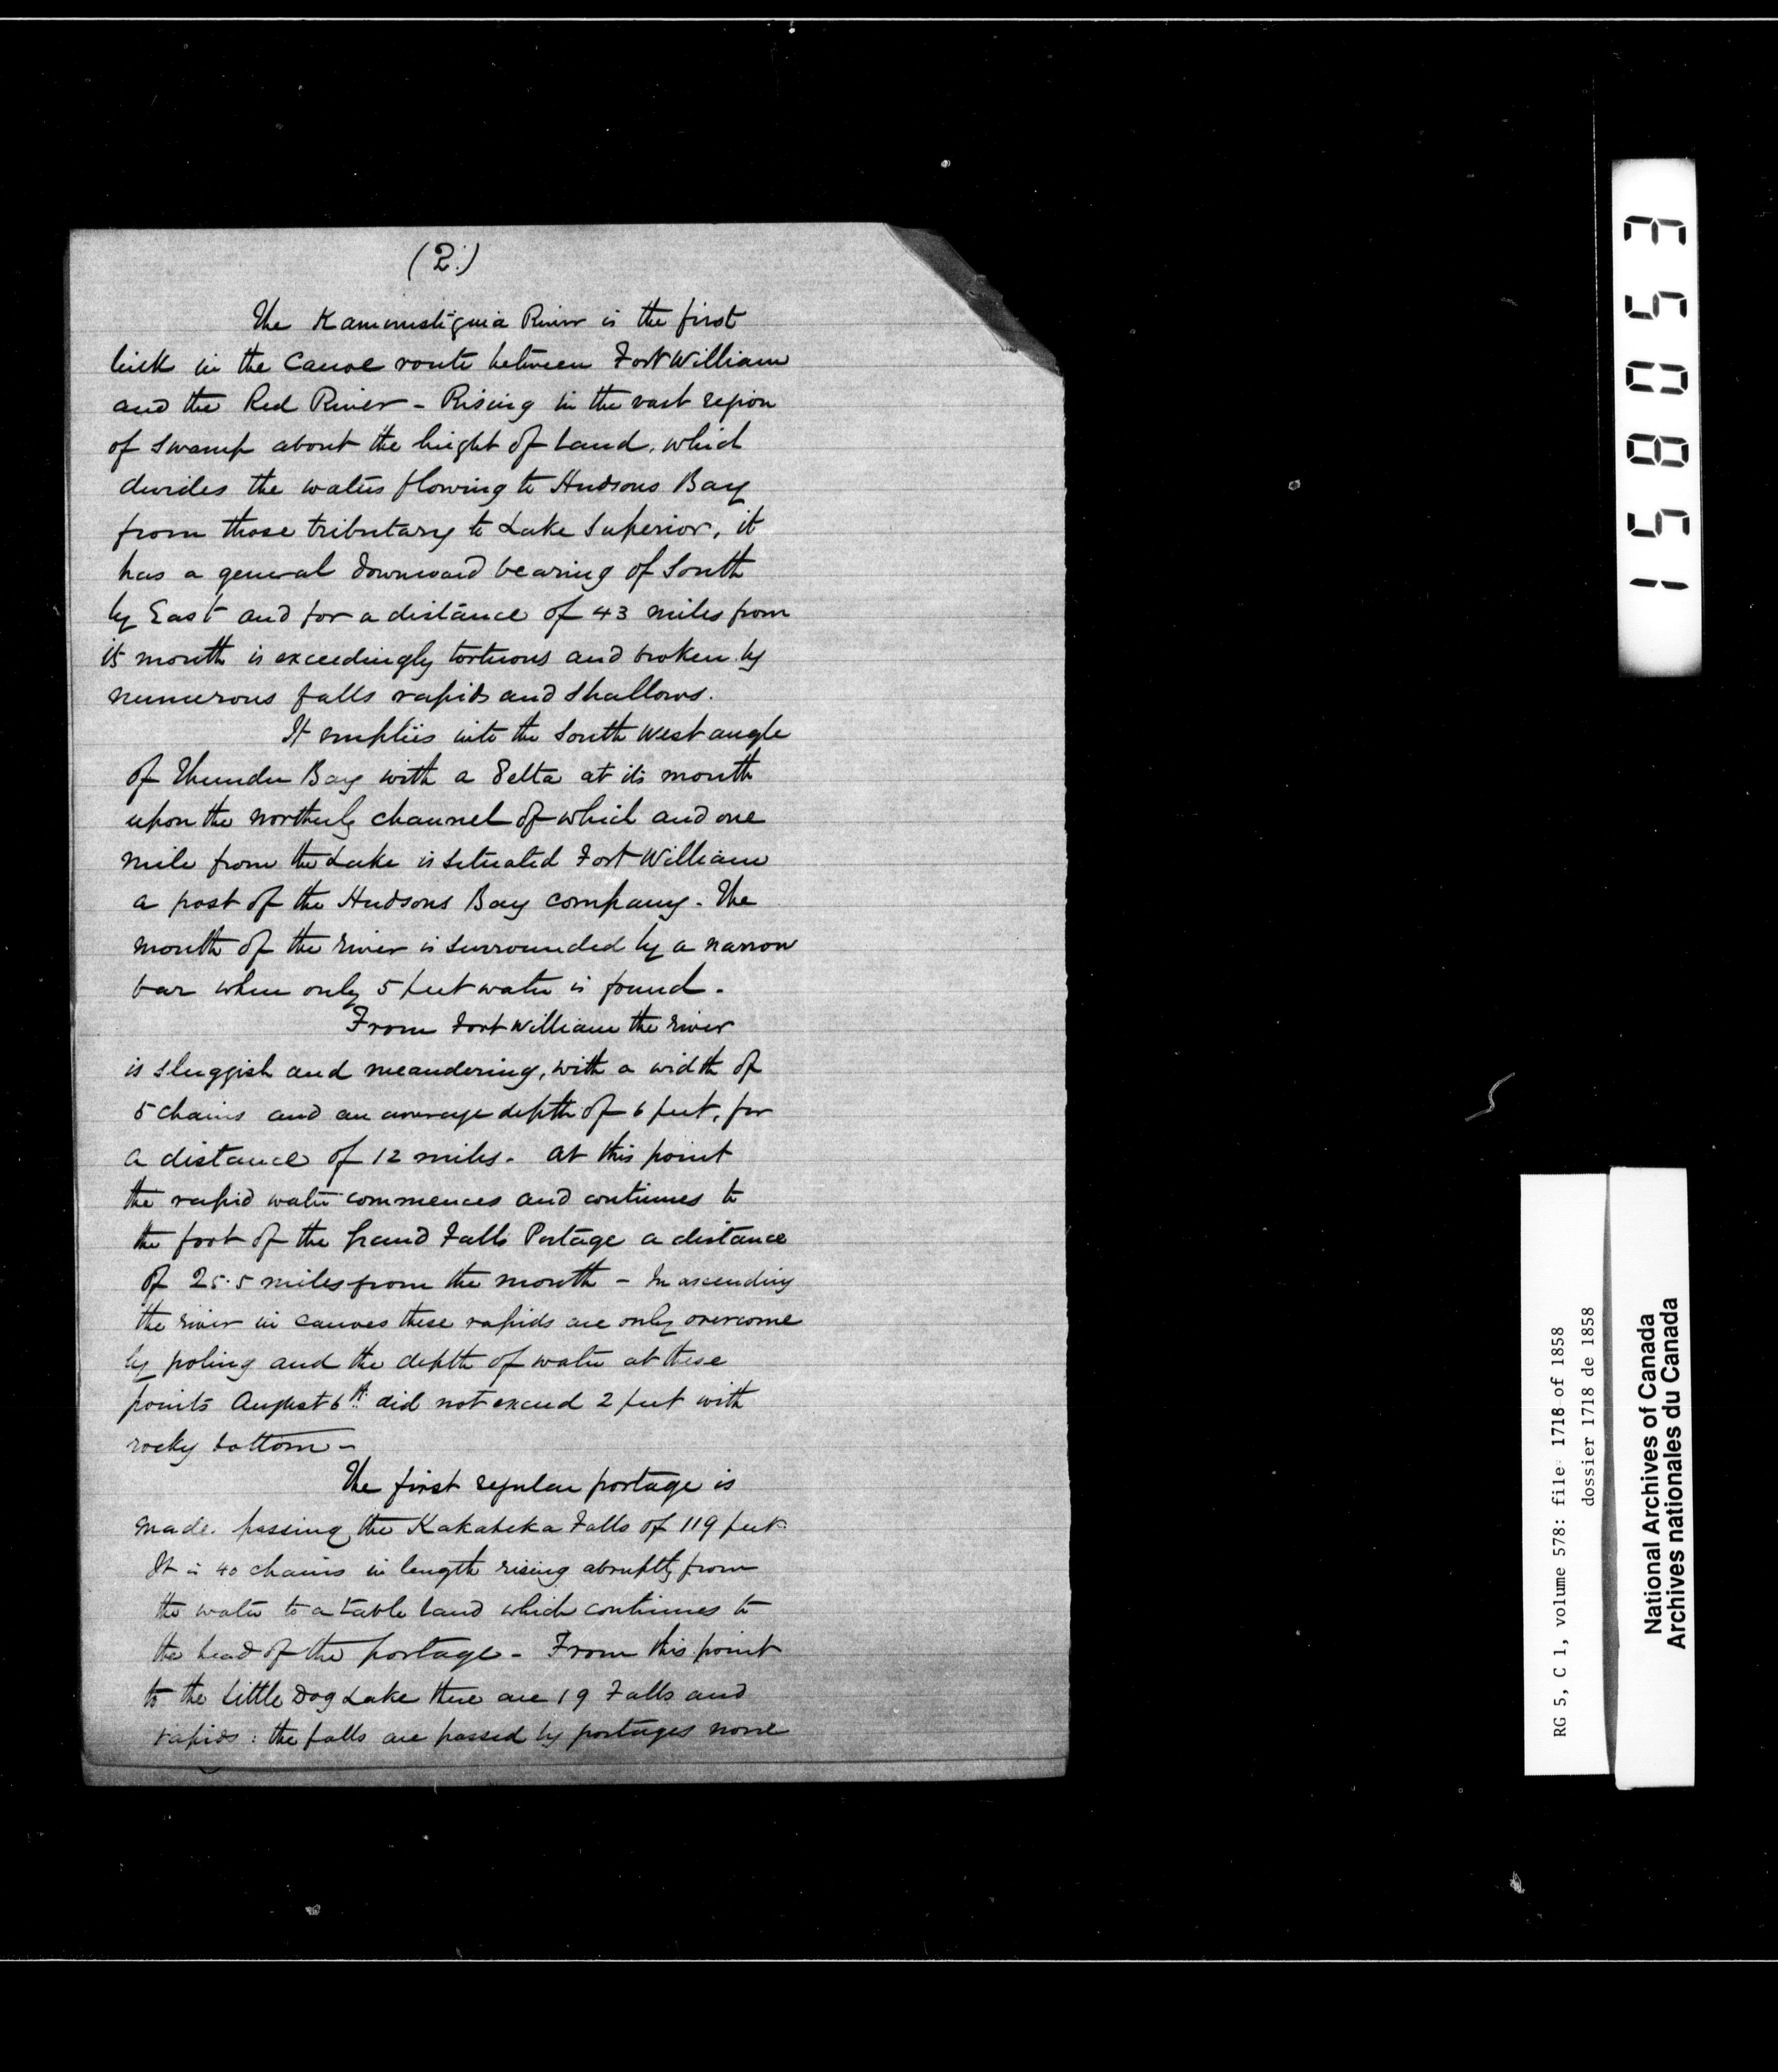 (2.)
The Kaministiquia River is the first
link in the Canoe route between Fort William
and the Red River - Rising in the vast region
of swamp about the height of Land, which
divides the waters flowing to Hudsons Bay
from those tributary to Lake Superior, it
has a general downward bearing of South
by East and for a distance of 43 miles from
its mouth is exceedingly tortuous and broken by
numerous falls rapids and shallows.
It empties into the South West angle
of Thunder Bay with a Delta at its mouth
upon the northerly channel of which and one
mile from the Lake is situated Fort William
a post of the Hudsons Bay Company. The
mouth of the river is surrounded by a narrow
bar where only 5 feet water is found.
From Fort William the river
is sluggish and meandering, with a width of
5 chains and an average depth of 6 feet, for
a distance of 12 miles. At this point
the rapid water commences and continues to
the foot of the Grand Falls Portage a distance
of 25.5 miles from the mouth - In ascending
the river in canoes these rapids are only overcome
by poling and the depth of water at these
points August 6th did not exceed 2 feet with
rocky bottom -
The first regular portage is
made passing the Kakabeka Falls of 119 feet.
It is 40 chains in length rising abruptly from
the water to a table land which continues to
the head of the portage - From this point
to the Little Dog Lake there are 19 Falls and
rapids: the falls are passed by portages none
158053
RG 5, C 1, volume 578: file 1718 of 1858
dossier 1718 de 1858
National Archives of Canada
Archives nationales du Canada